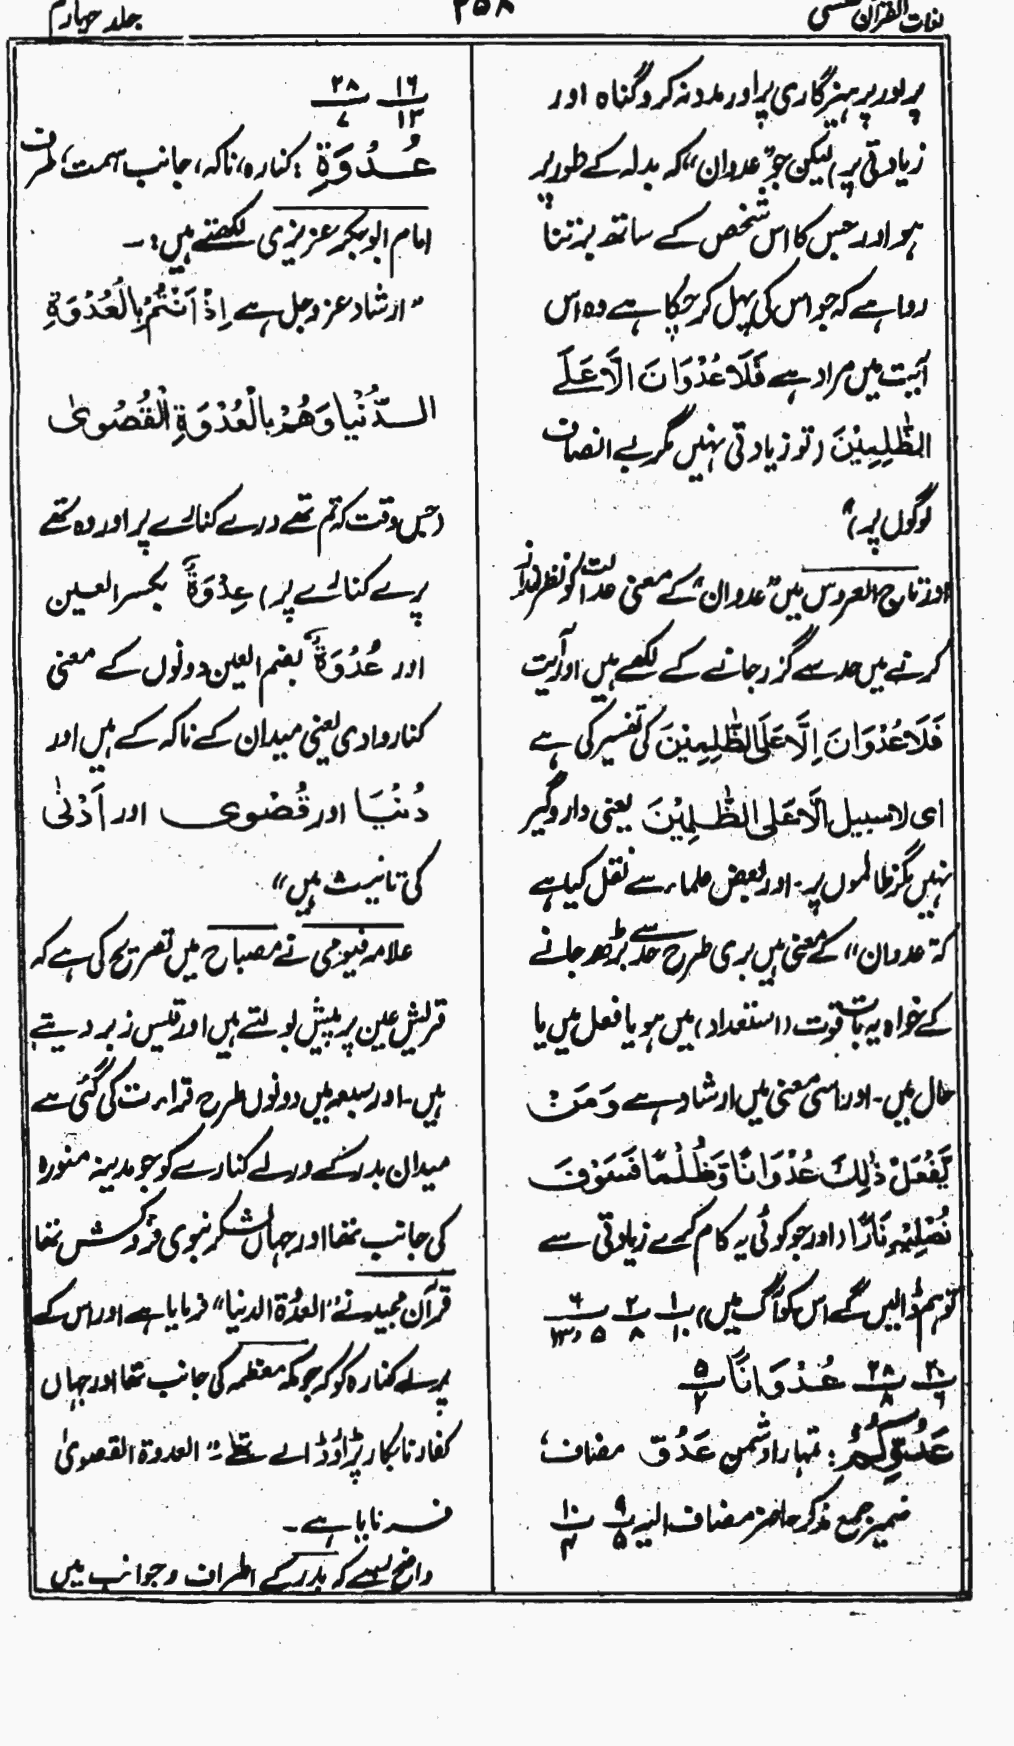 لغات القرآن
۲۵۸
جلد چہارم
پر اور پرہیزگاری پر اور مدد نہ کرو گناہ اور
زیادتی پر) لیکن جو "عدوان" کہ بدلہ کے طور پر
ہو اور جس کا اس شخص کے ساتھ برتنا
روا ہے کہ جو اس کی پہل کر چکا ہے وہ اس
آیت میں مراد ہے فَلَا عُدْوَانَ اِلَّا عَلَی
الظّٰلِمِیْنَ (تو زیادتی نہیں مگر بے انصاف
لوگوں پر)"
اور تاج العروس میں "عدوان" کے معنی عدالت کو نظر انداز
کرنے میں حد سے گزر جانے کے لکھے ہیں اور آیت
فَلَا عُدْوَانَ اِلَّا عَلَی الظّٰلِمِیْنَ کی تفسیر کی ہے
ای لا سبیل اِلَّا عَلَی الظّٰلِمِیْنَ یعنی دار و گیر
نہیں مگر ظالموں پر۔ اور بعض علماء سے نقل کیا ہے
کہ "عدوان" کے معنی ہیں بری طرح حد سے بڑھ جانے
کے خواہ یہ بات قوت (استعداد) میں ہو یا فعل میں یا
حال میں۔ اور اسی معنی میں ارشاد ہے وَمَنْ
یَّفْعَلْ ذٰلِکَ عُدْوَانًا وَّظُلْمًا فَسَوْفَ
نُصْلِیْہِ نَارًا (اور جو کوئی یہ کام کرے زیادتی سے
تو ہم ڈالیں گے اس کو آگ میں) ۱/۱۰ ۲/۸ ۶/۵،۱۳
۲۰/۶ ۲۸/۸ عُدْوَانًا ۵/۲
عَدُوَّکُمْ: تمہارا دشمن عَدُوّ مضاف،
ضمیر جمع مذکر حاضر مضاف الیہ ۹/۵ ۱۰/۴
۱۶/۱۳ ۲۸/۷
عُدْوَةِ: کنارہ، ناکہ، جانب سمت، طرف
امام ابوبکر عزیزی لکھتے ہیں:۔
"ارشاد عزوجل ہے اِذْ اَنْتُمْ بِالْعُدْوَةِ
الدُّنْیَا وَھُمْ بِالْعُدْوَةِ الْقُصْوٰی
(جس وقت کہ تم تھے ورے کنارے پر اور وہ تھے
پرے کنارے پر) عِدْوَةٌ بکسر العین
اور عُدْوَةٌ بضم العین دونوں کے معنی
کنار وادی یعنی میدان کے ناکہ کے ہیں اور
دُنْیَا اور قُصْوٰی اور اَدْنٰی
کی تانیث ہیں"
علامہ فیومی نے مصباح میں تصریح کی ہے کہ
قریش عین پر پیش بولتے ہیں اور قیس زبر دیتے
ہیں۔ اور سبعہ میں دونوں طرح قراءت کی گئی ہے
میدان بدر کے ورلے کنارے کو جو مدینہ منورہ
کی جانب تھا اور جہاں لشکر نبوی فروکش تھا
قرآن مجید نے "العدوۃ الدنیا" فرمایا ہے اور اس کے
پرلے کنارہ کو کہ جو مکہ معظمہ کی جانب تھا اور جہاں
کفار نابکار پڑاؤ ڈالے تھے "العدوۃ القصویٰ
فرمایا ہے۔
واضح رہے کہ بدر کے اطراف و جوانب میں